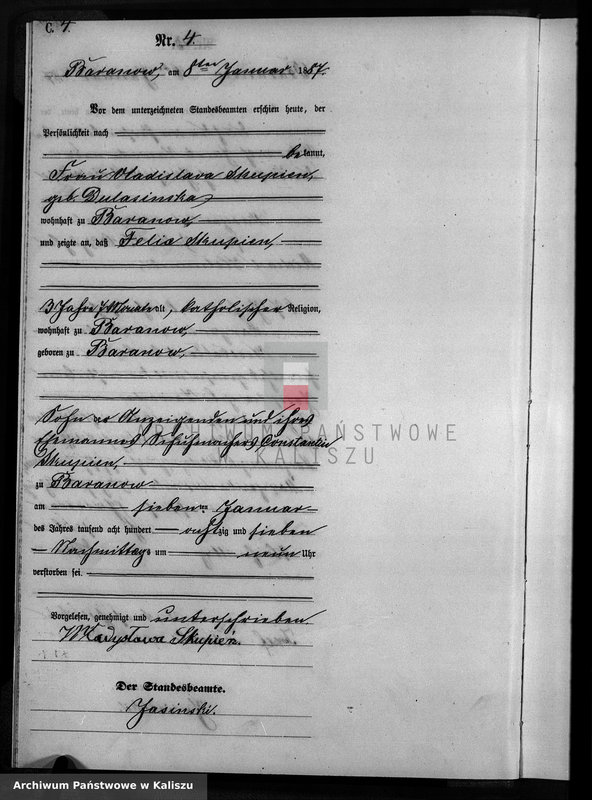 C. 4.
Nr. 4.
Baranow, am 8ten Januar 1887.
Vor dem unterzeichneten Standesbeamten erschien heute, der
Persönlichkeit nach
bekannt,
Frau Vladislava Skupien,
geb. Dulasinska
wohnhaft zu Baranow,
und zeigte an, daß Felix Skupien,
3 Jahre 7 Monate alt, katholischer Religion,
wohnhaft zu Baranow,
geboren zu Baranow,
Sohn der Anzeigenden und ihres
Ehemannes Schuhmachers Constantin
Skupien,
zu Baranow
am sieben ten Januar
des Jahres tausend acht hundert achtzig und sieben
Nachmittags um neun Uhr
verstorben sei.
Vorgelesen, genehmigt und unterschrieben.
Władysława Skupień.
Der Standesbeamte.
Jasinski.
ARCHIWUM PAŃSTWOWE
W KALISZU
Archiwum Państwowe w Kaliszu